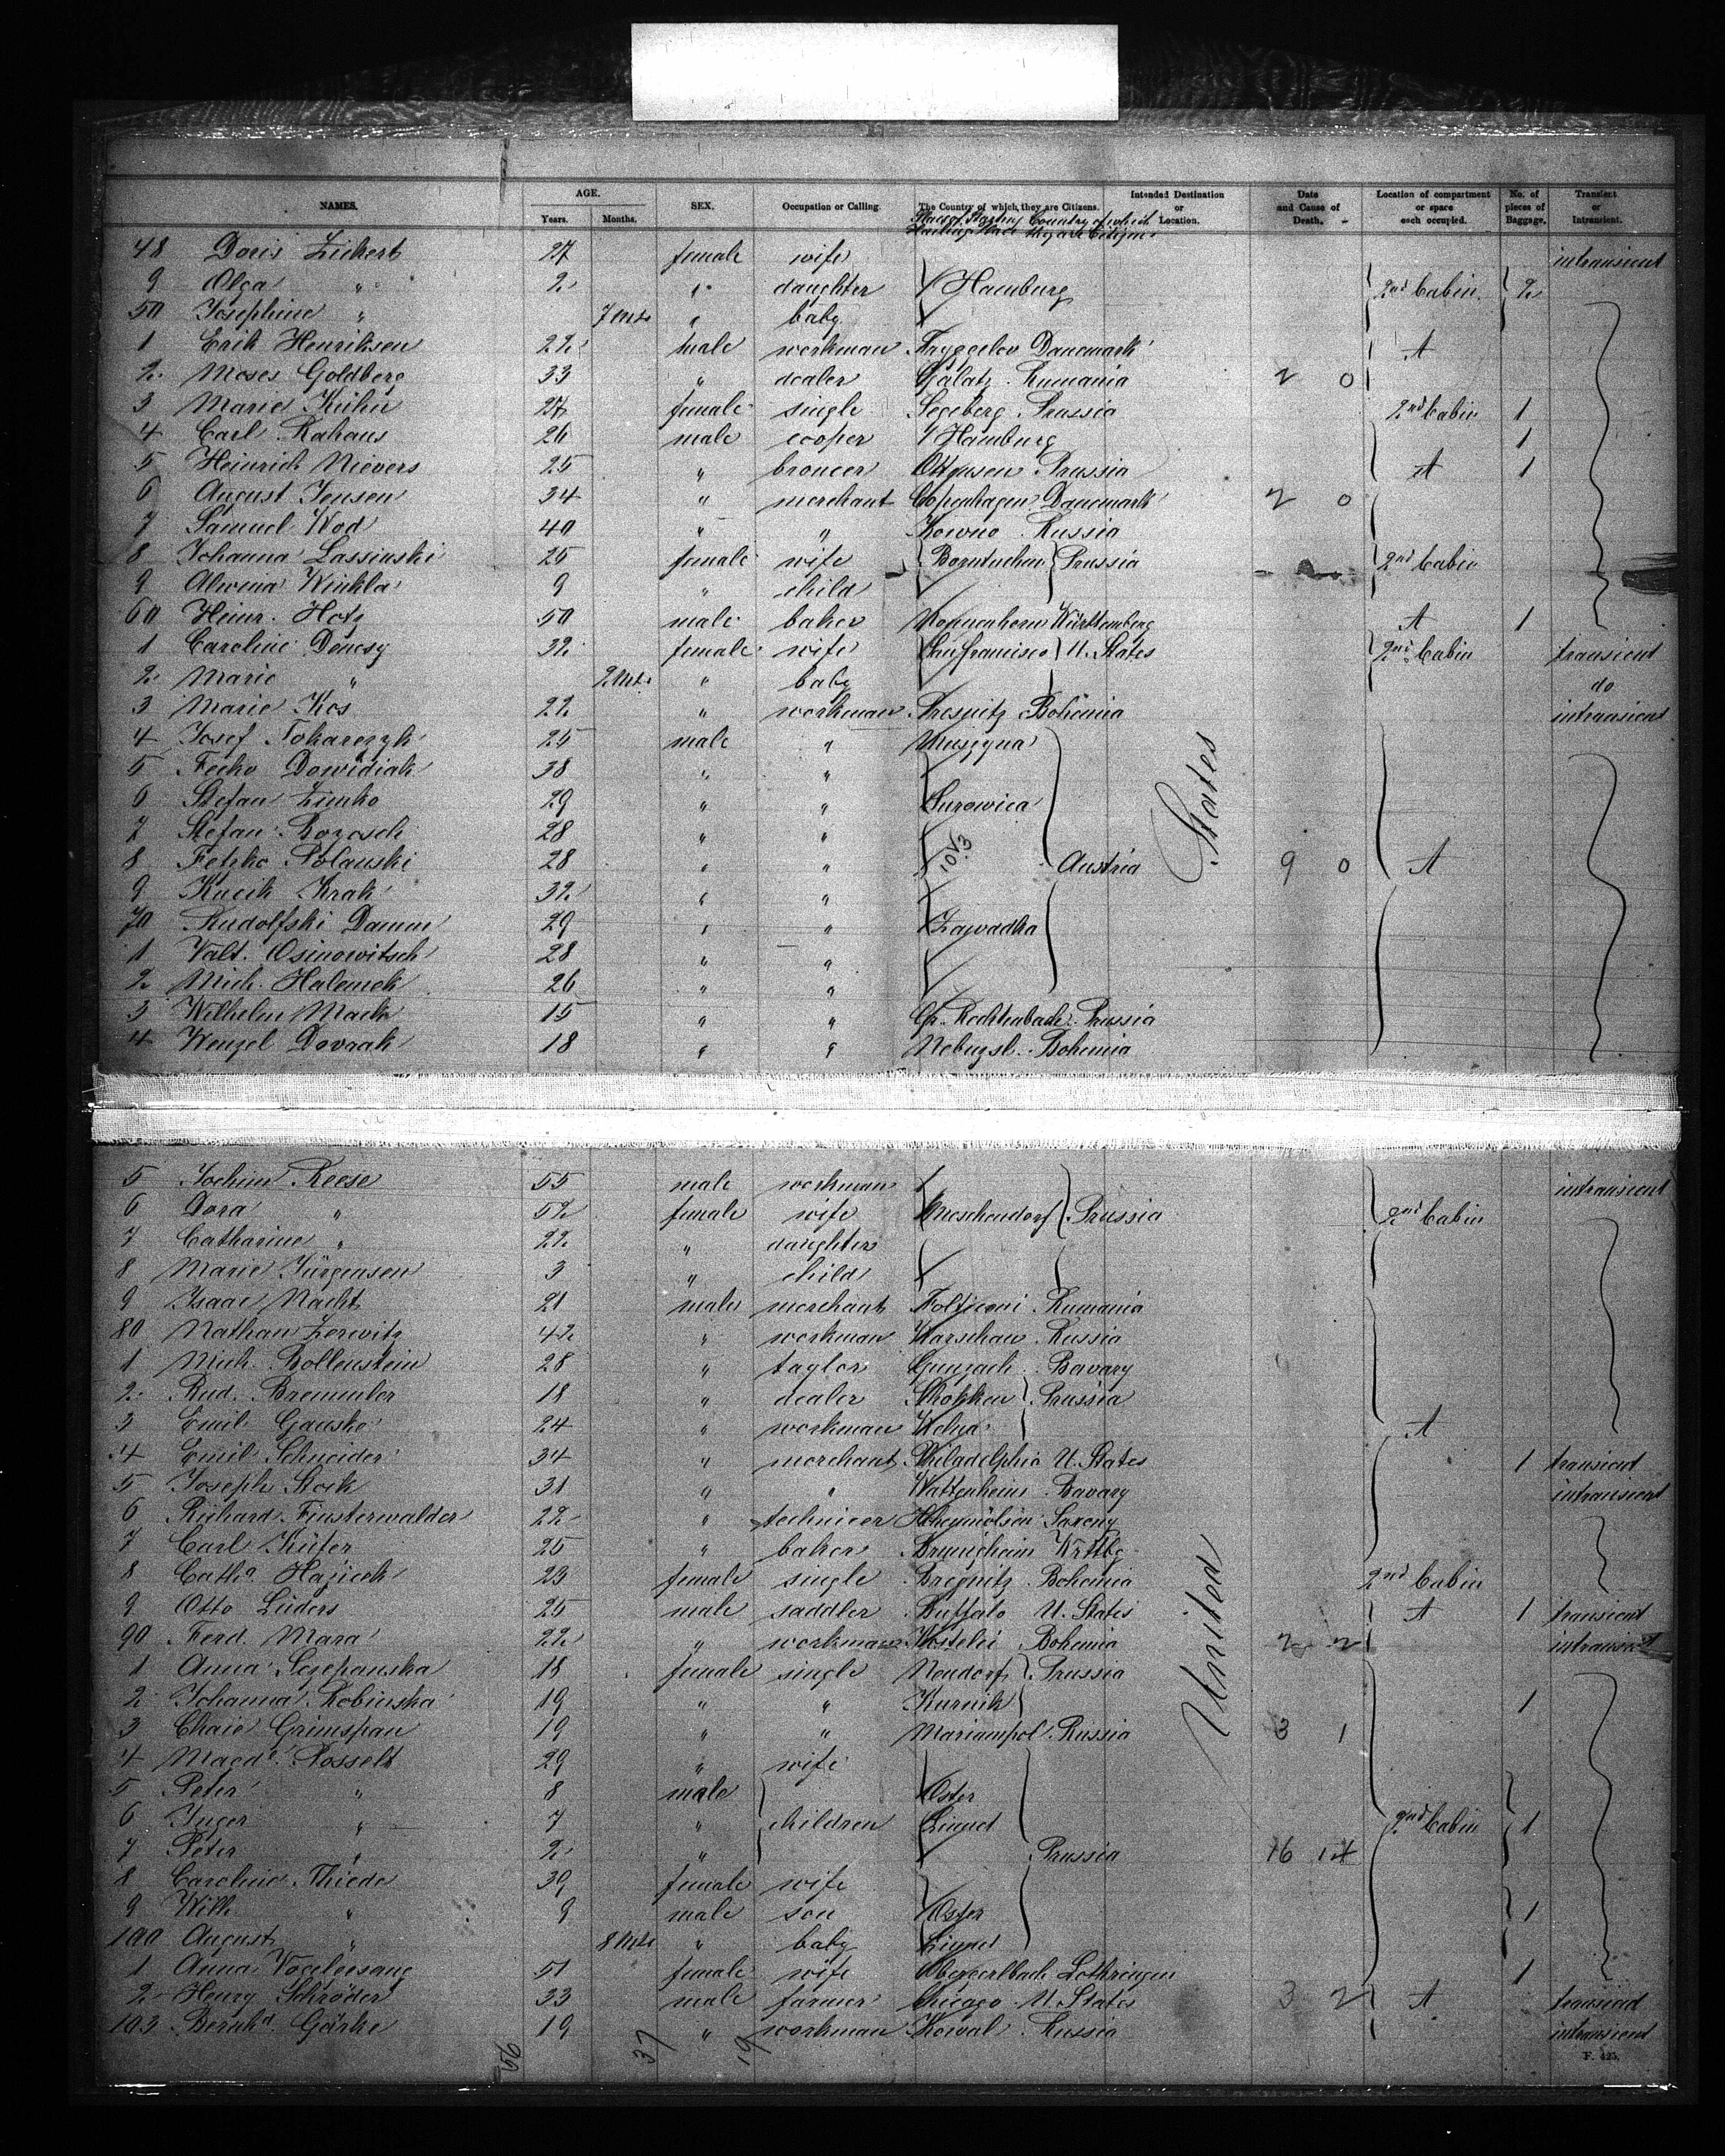 NAMES. AGE. Years. Months. SEX. Occupation or Calling. The Country of which they are Citizens. Intended Destination or Location. Date and Cause of Death. Location of compartment or space each occupied. No. of pieces of Baggage. Transient or Intransient.
Country of which they are Citizens
48 Doris Zickert 27 female wife intransient
9 Olga " 2 " daughter Hamburg 2nd Cabin 2
50 Josephine " 7 Mts " baby
1 Erik Henriksen 22 male workman Tryggelev Danemark A
2 Moses Goldberg 33 " dealer Galatz Rumania 2 0
3 Marie Kühn 27 female single Segeberg Prussia 2nd Cabin 1
4 Carl Rahaus 26 male cooper Hamburg 1
5 Heinrich Nievers 25 " broncer Ottensen Prussia A 1
6 August Jensen 34 " merchant Copenhagen Danemark 2 0
7 Samuel Wod 40 " " Kowno Russia
8 Johanna Lassinski 25 female wife Borntuchen Prussia 2nd Cabin
9 Alwena Winkla 9 " child
60 Heinr. Hotz 50 male baker Nonnenhorn Württemberg A 1
1 Caroline Denesy 32 female wife San Francisco U. States 2nd Cabin transient
2 Marie " 2 Mts " baby do
3 Marie Kos 22 " workman Bohemia intransient
4 Josef Tokarczyk 25 male " Muszyna
5 Fecko Dowidiak 38 " "
6 Stefan Zimko 29 " " Surowica
7 Stefan Rozosch 28 " "
8 Fetzko Polanski 28 " " Austria 9 0 A
9 Kucik Krak 32 " "
70 Rudolfski Damm 29 " " Zawadka
1 Valt. Osinowitsch 28 " "
2 Mich. Halemek 26 " "
3 Wilhelm Mack 15 " " Gr. Rechtenbach Prussia
4 Wenzel Dovrak 18 " " Bohemia
States
5 Jochim Reese 55 male workman intransient
6 Dora " 52 female wife Meschendorf Prussia 2nd Cabin
7 Catharine " 22 " daughter
8 Marie Jürgensen 3 " child
9 Isaac Nacht 21 male merchant Folticeni Rumania
80 Nathan Zerwitz 42 " workman Warschau Russia
1 Mich. Bollenstein 28 " taylor Gunzach Bavary
2 Rud. Bremmler 18 " dealer Schokken Prussia
3 Emil Ganske 24 " workman Welna A
4 Emil Schneider 34 " merchant Philadelphia U. States 1 transient
5 Joseph Stock 31 " " Wattenheim Bavary intransient
6 Richard Finsterwalder 22 " technicer Saxony
7 Carl Küfer 25 " baker Wrttbg
8 Catha Hajicek 23 female single Bregnitz Bohemia 2nd Cabin
9 Otto Lüders 25 male saddler Buffalo U. States A 1 transient
90 Ferd. Mara 22 " workman Kostelei Bohemia 2 2 intransient
1 Anna Sczepanska 18 female single Neudorf Prussia
2 Johanna Robinska 19 " " Kurnik 1
3 Chaie Grünspan 19 " " Mariampol Russia 3 1
4 Magda Posselt 29 " wife
5 Peter " 8 male Oster
6 Inger " 7 " children Linnet 2nd Cabin 1
7 Peter " 2 " Prussia 16 14
8 Caroline Thiede 39 female wife
9 Wilh. " 9 male son Oster 1
100 August " 8 Mts " baby Linnet
1 Anna Vogelesang 51 female wife Lothringen 1
2 Henry Schröder 33 male farmer Chicago U. States 3 2 A transient
103 Bernhd. Gärke 19 " workman Kowal Russia intransient
United
56 37 19
F. 425.